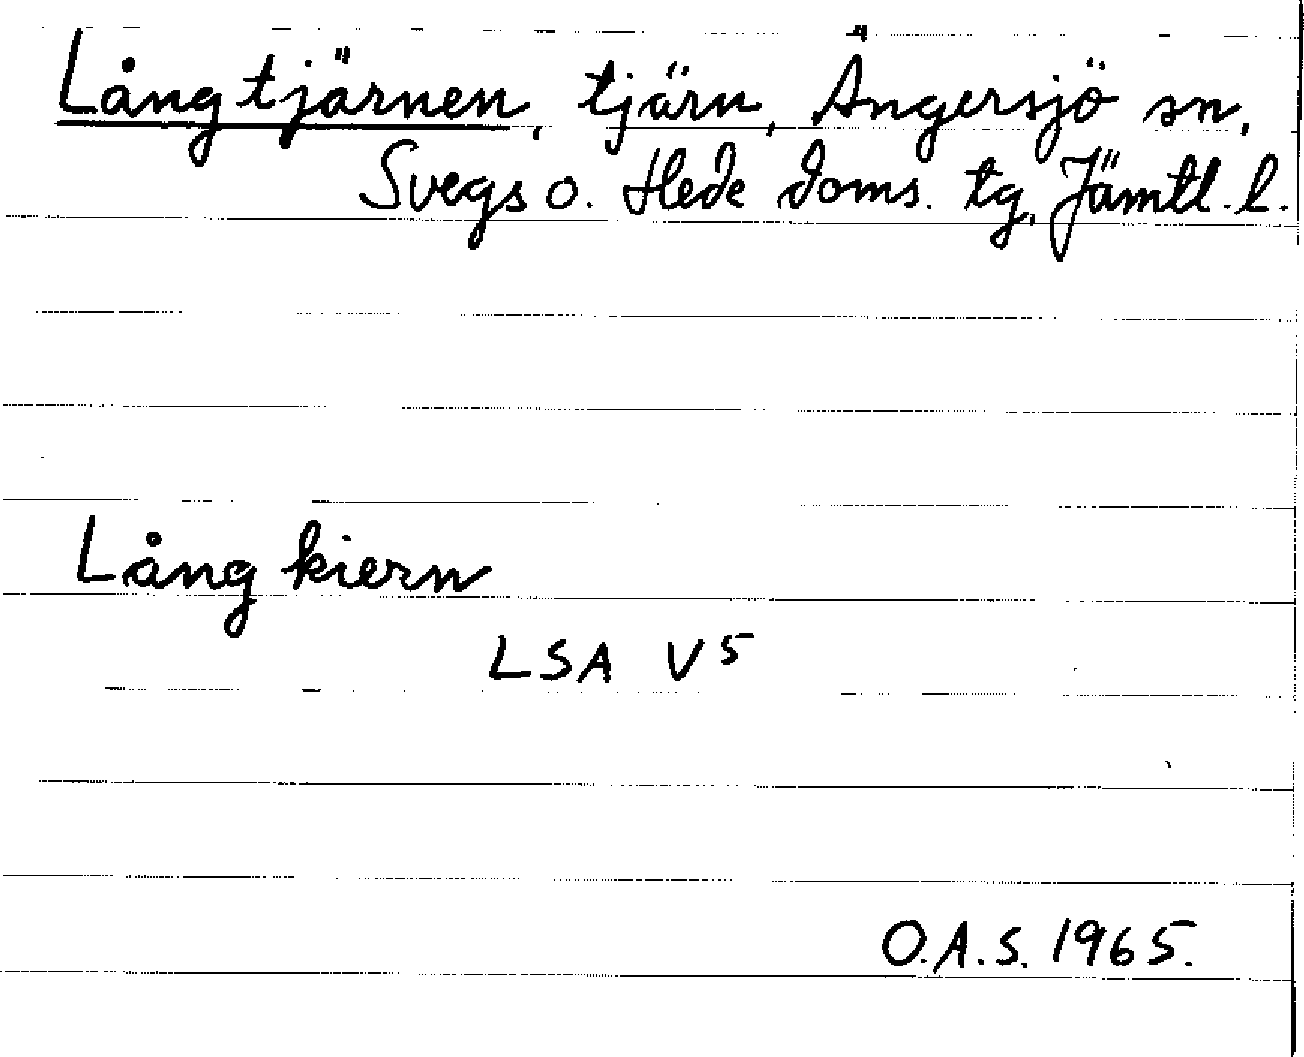 Långtjärnen, tjärn, Ängersjö sn,
Svegs o. Hede doms. tg, Jämtl. l.
Lång kiern
LSA V5
O.A.S. 1965.